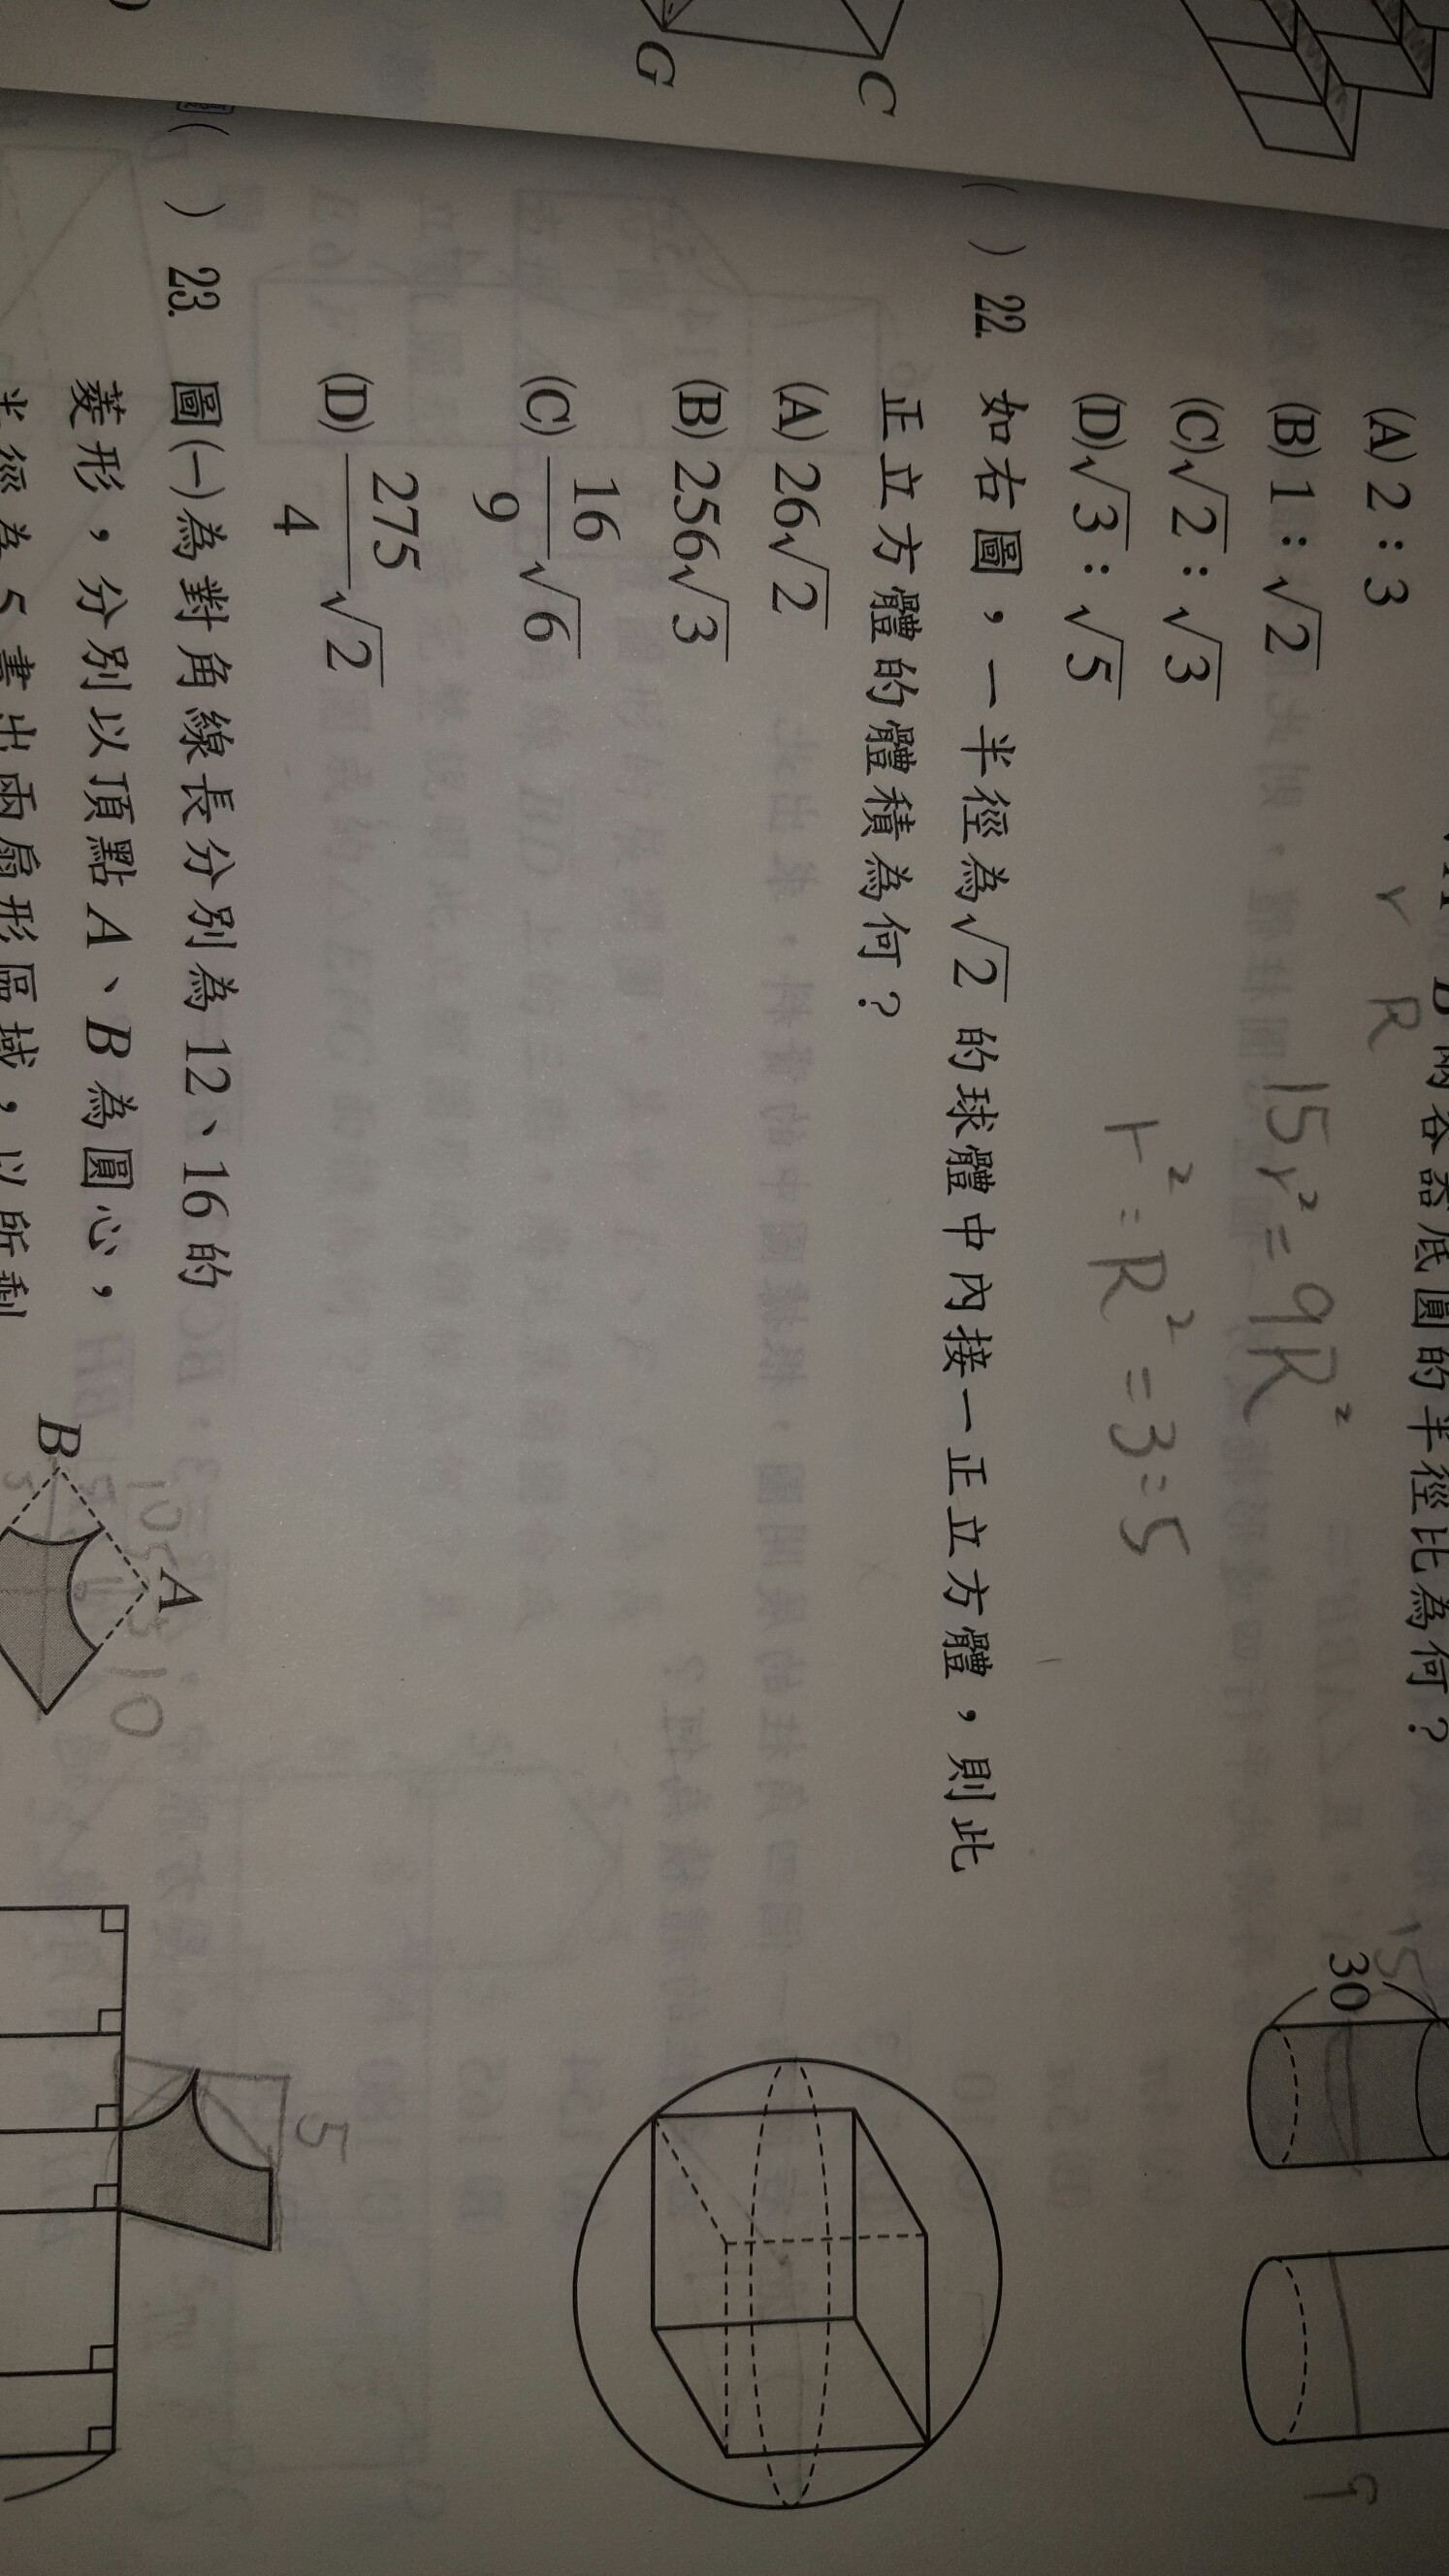 G
C
B兩容器底圓的半徑比為何？
(A) 2：3
(B) 1：√2
(C) √2：√3
(D) √3：√5
r R
15r²=9R²
r²=R²=3=5
15
30
9
( ) 22. 如右圖，一半徑為√2 的球體中內接一正立方體，則此
正立方體的體積為何？
(A) 26√2
(B) 256√3
(C) 16/9 √6
(D) 275/4 √2
( ) 23. 圖(一)為對角線長分別為12、16的
菱形，分別以頂點A、B為圓心，
半徑為5畫出兩扇形區域，以所剩
B
A
10
5